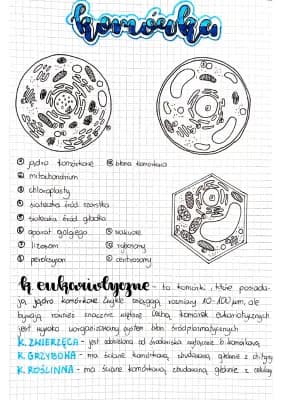 komórka
① jądro komórkowe ⑫ błona komórkowa
② mitochondrium
③ chloroplasty
④ siateczka śród. szorstka
⑤ siateczka śród. gładka
⑥ aparat golgiego ⑨ wakuole
⑦ lizosom ⑩ rybosomy
⑧ peroksysom ⑪ centrosomy
k. eukariotyczne - to komórki, które posiada-
ją jądro komórkowe. Zwykle osiągają rozmiary 10-100 µm, ale
bywają również znacznie większe. Cechą komórek eukariotycznych
jest wysoko zorganizowany system błon śródplazmatycznych
K. ZWIERZĘCA - jest oddzielona od środowiska wyłącznie b. komórkową
K. GRZYBOWA - ma ścianę komórkową, zbudowaną głównie z chityny
K. ROŚLINNA - ma ścianę komórkową, zbudowaną głównie z celulozy